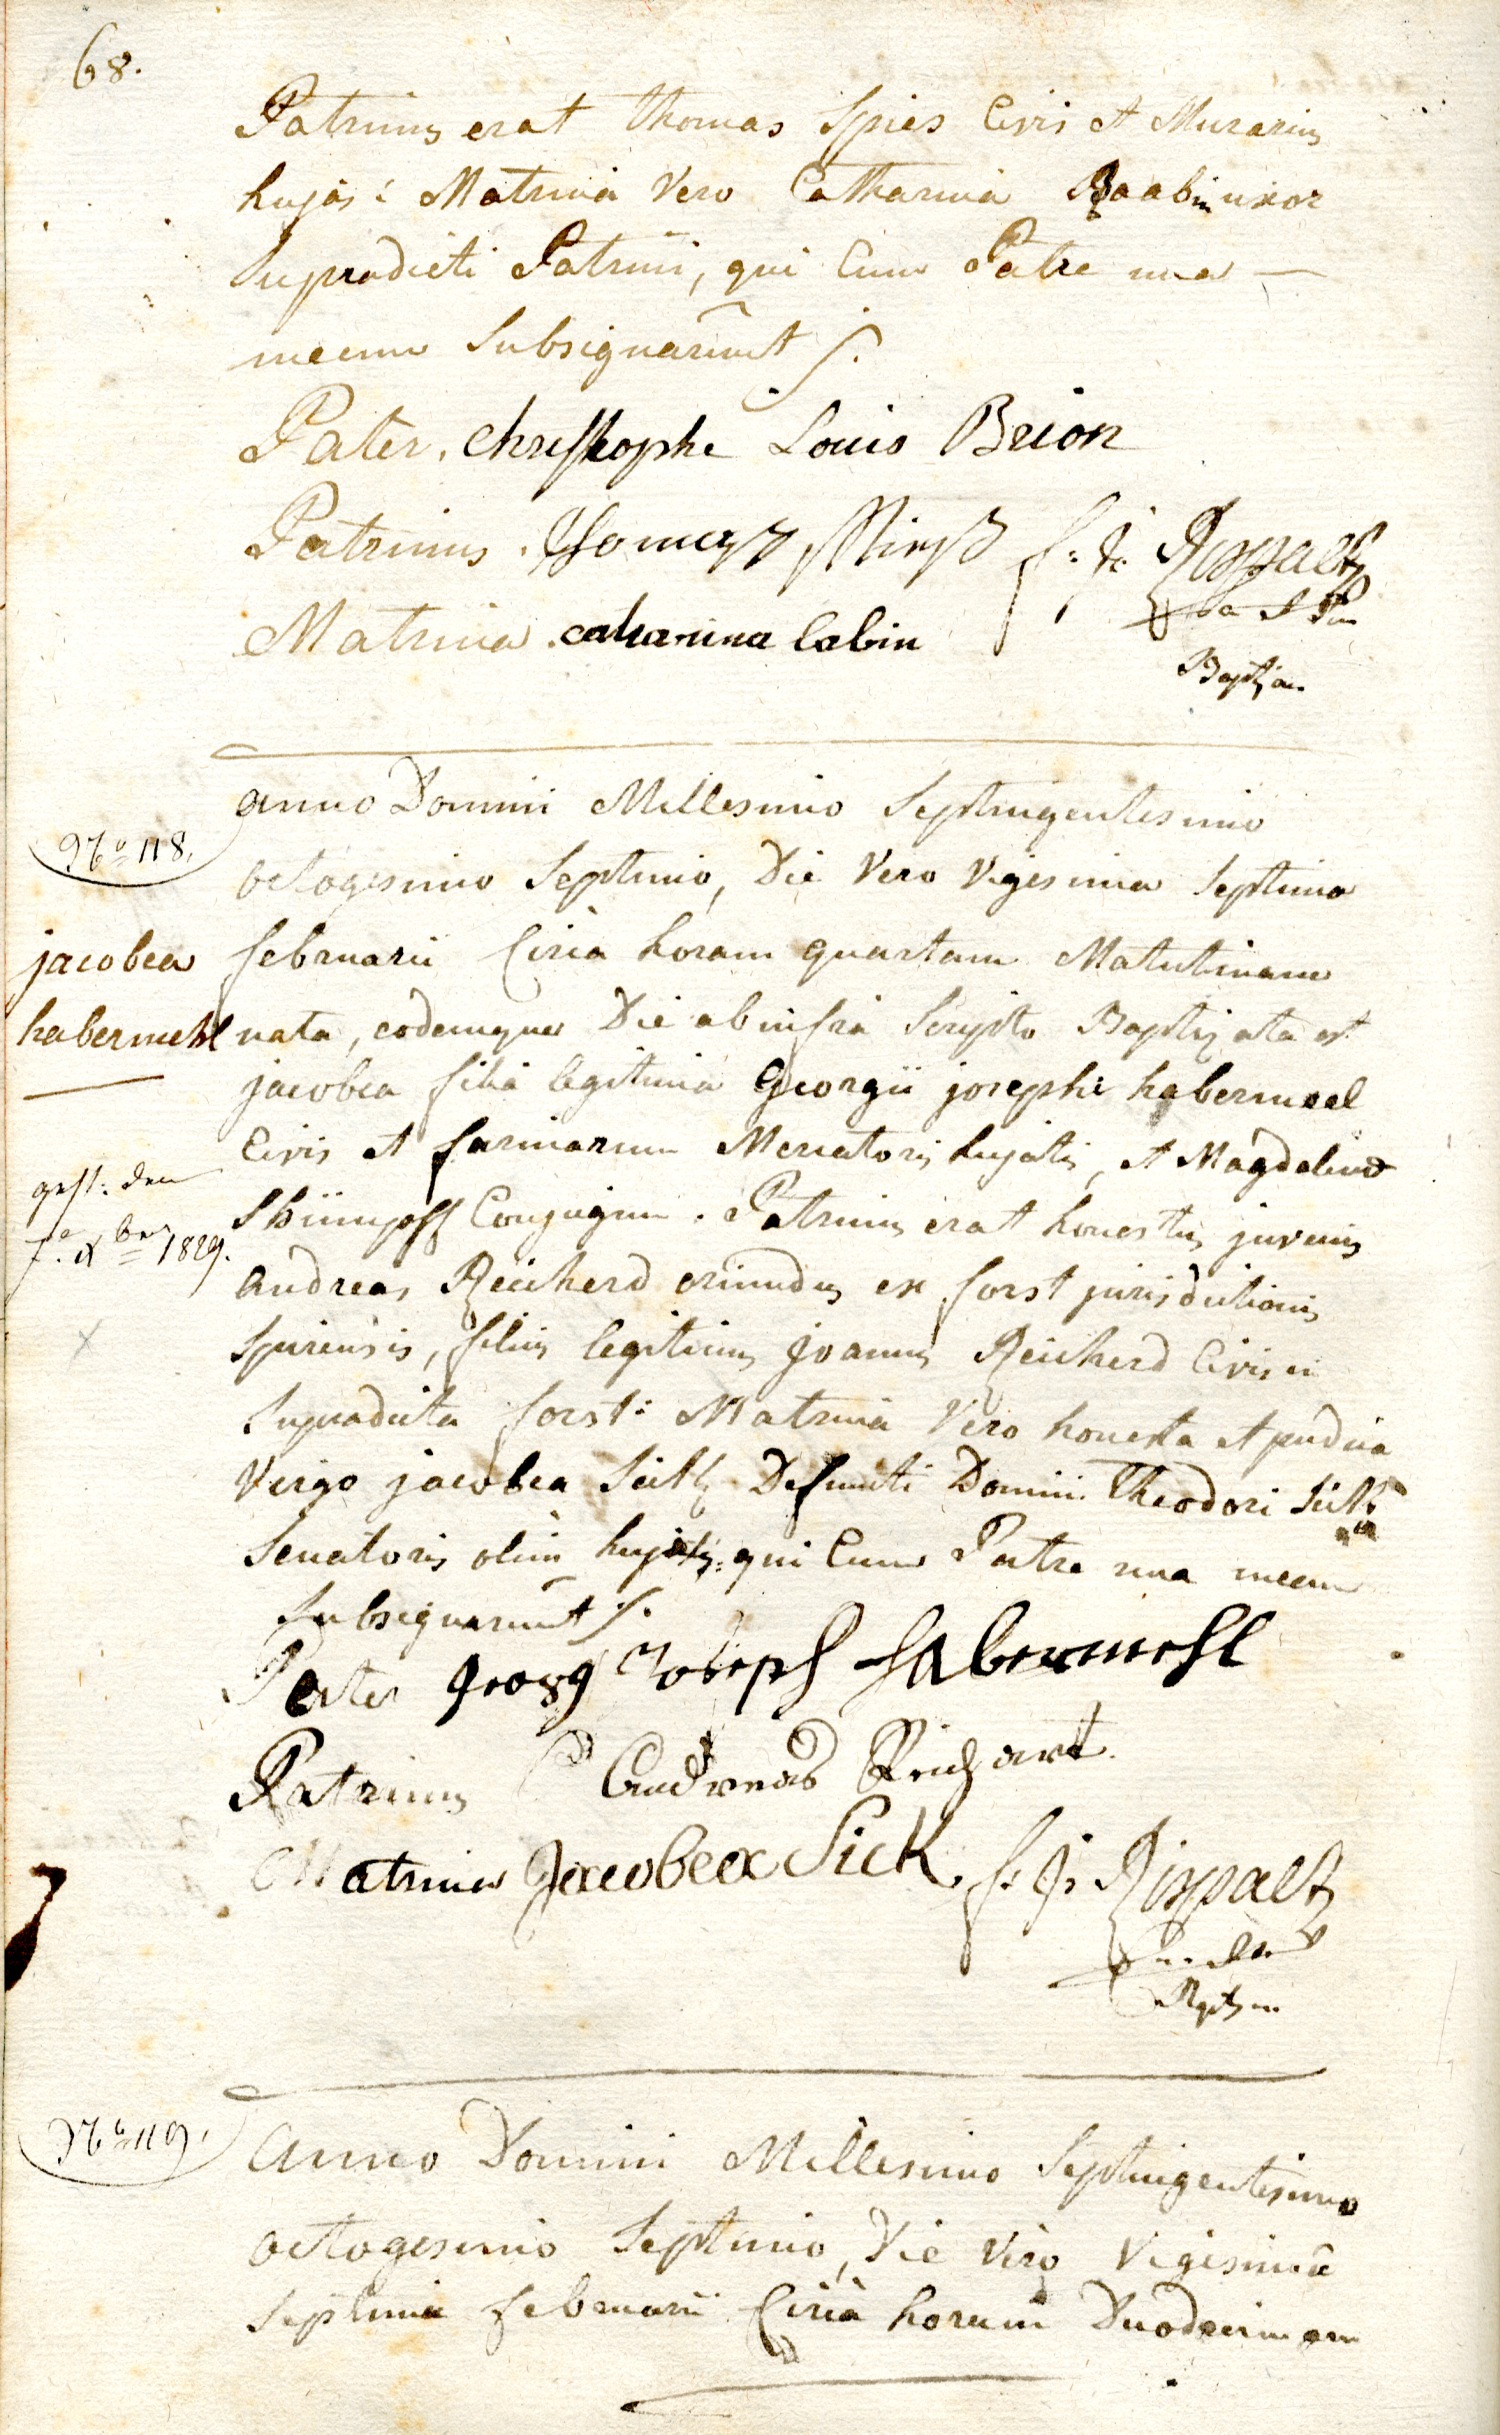 68.
Patrinus erat Thomas Spies Civis et Murarius
hujás: Matrina Vero Catharina Raabin uxor
supradicti Patrini, qui Cum Patre una —
mecum Subsignarunt
Pater. christophe Louis Brion
Patrinus. Thomas Spieß f: J: Rispaltz
Matrina. catharina labin
Baptizans
anno Domini Millesimo Septingentesimo
No 118.
octogesimo Septimo, Die Vero Vigesima Septima
jacobea februarii Circa horam quartam Matutinam
habermehl nata, eodemque Die ab infra Scripto Baptizata est
jacobea filia legitima Georgii josephi habermeel
Civis et farinarum Mercatoris hujatis, et Magdalenæ
gest: den
Schimpff Conjugum. Patrinus erat honestus juvenis
7.e xber 1829.
andreas Reicherd oriundus ex forst jurisdictionis
Spirensis, filius legitimus joannis Reicherd Civis in
Supradicta forst: Matrina Vero honesta et pudica
Virgo jacobea Sick Defuncti Domini Theodori Sick
Senatoris olim hujatis: qui Cum Patre una mecum
Subsignarunt
Pater Georg Joseph Habermehl
Patrinus Andreas Reichart
Matrina Jacobea Sick f: J: Rispaltz
No 119.
Anno Domini Millesimo Septingentesimo
octogesimo Septimo, Die Vero Vigesima
Septima februarii Circa horam Duodecimam